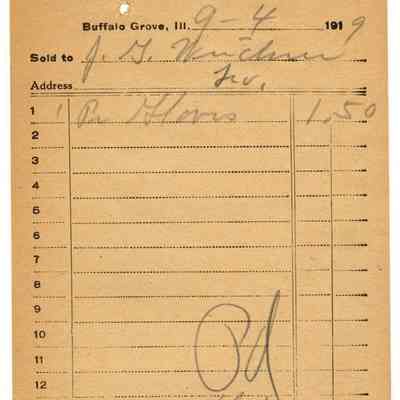 Buffalo Grove, Ill. 9-4 1919
Sold to J. G.
Address
1 1 Pr Gloves 1.50
2
3
4
5
6
7
8
9
10
11
12
Pd